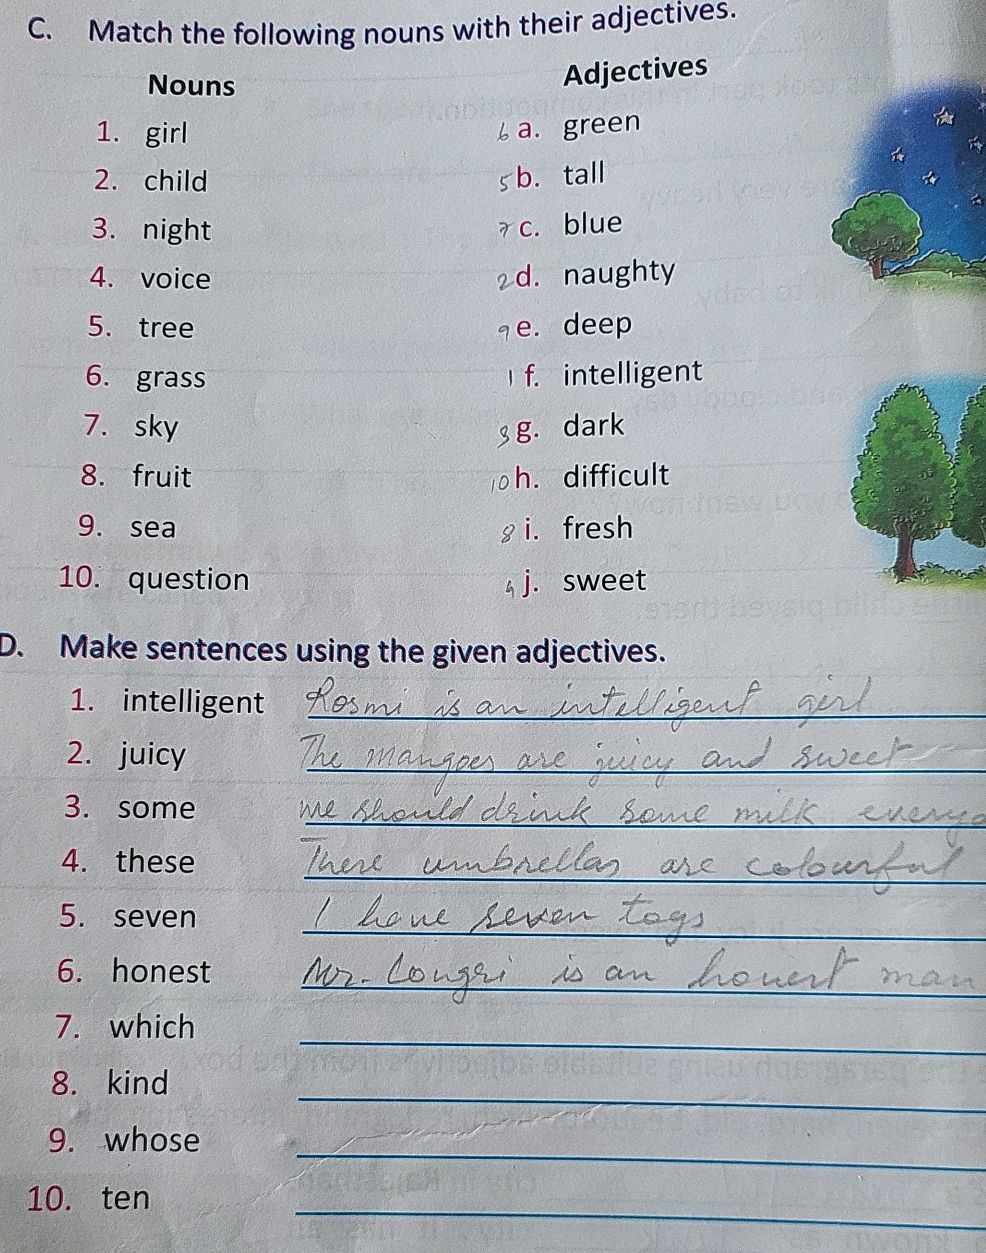 C. Match the following nouns with their adjectives.
Nouns Adjectives
1. girl 6 a. green
2. child 5 b. tall
3. night 7 c. blue
4. voice 2 d. naughty
5. tree 9 e. deep
6. grass 1 f. intelligent
7. sky 3 g. dark
8. fruit 10 h. difficult
9. sea 8 i. fresh
10. question 4 j. sweet
D. Make sentences using the given adjectives.
1. intelligent Rosmi is an intelligent girl
2. juicy The mangoes are juicy and sweet
3. some we should drink some milk
4. these These umbrellas are colourful
5. seven I have seven toys
6. honest Mr. is an honest man
7. which
8. kind
9. whose
10. ten